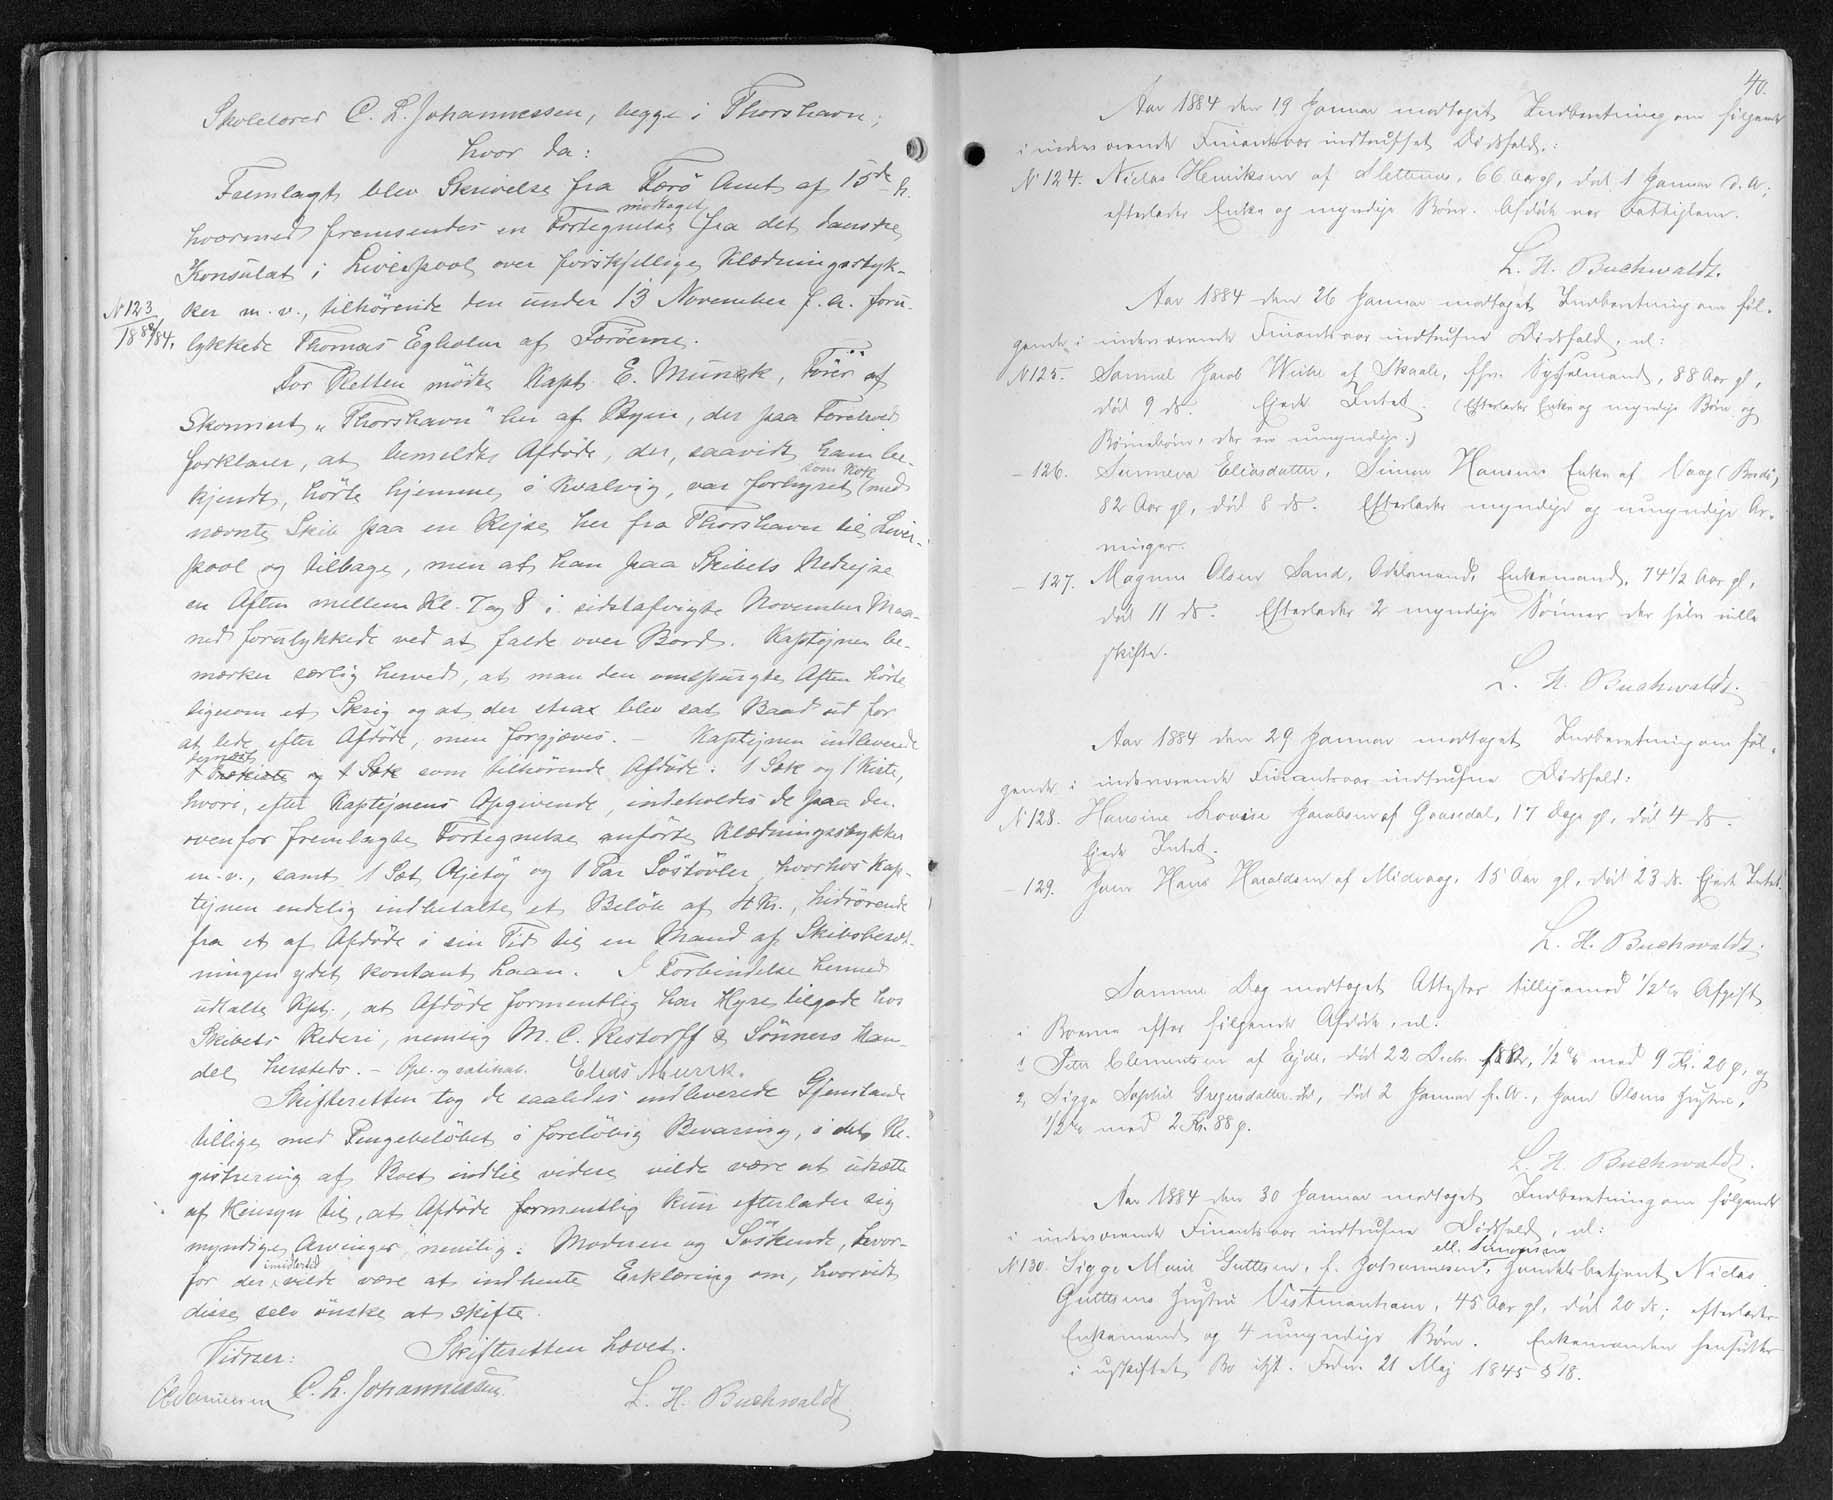 Skolelærer C. L. Johannessen, begge i Thorshavn;
hvor da:
Fremlagt blev Skrivelse fra Færö Amt af 15de h.
hvormed fremsendes en Fortegnelse modtaget fra det danske
Konsulat i Liverpool over forskjellige Klædningsstyk-
N 123 1883/84. ker m. v., tilhörende den under 13 November f. a. foru-
lykkede Thomas Egholm af Færöerne.
For Retten mødte Kapt. E. Munck, Förer af
Skonnert „Thorshavn" her af Byen, der paa Forehold
forklarer, at bemeldte Afdöde, der, saavidt ham be-
kjendt, hörte hjemme i Kvalvig, var forhyret som Kok med
nævnte Skib paa en Rejse her fra Thorshavn til Liver-
pool og tilbage, men at han paa Skibets Nedrejse
en Aften mellem Kl. 7 og 8 i sidstafvigte November Maa-
ned forulykkede ved at falde over Bord. Kaptejnen be-
mærker særlig herved, at man den omspurgte Aften hörte
ligesom et Skrig og at der strax blev sat Baad ud for
at lede efter Afdöde, men forgjæves. - Kaptejnen indleverede
dernæst som tilhörende Afdöde: 1 Sæk og 1 Kiste,
hvori, efter Kaptejnens Opgivende, indeholdes de paa den
ovenfor fremlagte Fortegnelse anförte Klædningsstykker
m. v., samt 1 Sæt Oljetöj og 1 Par Söstövler, hvorhos Kap-
tejnen endelig indbetalte et Belöb af 4 Kr., hidrörende
fra et af Afdöde i sin Tid til en Mand af Skibsbesæt-
ningen ydet kontant Laan. I Forbindelse hermed
udtalte Kpt., at Afdöde formentlig har Hyre tilgode hos
Skibets Rederi, nemlig M. C. Restorff & Sönners Han-
del hersteds. - Opl. og ratihab. Elias Munck.
Skifteretten tog de saaledes indleverede Gjenstande
tillige med Pengebelöbet i foreløbig Bevaring, idet Re-
gistrering af Boet indtil videre vilde være at udsætte
af Hensyn til, at Afdöde formentlig kun efterlader sig
myndige Arvinger, nemlig: Moderen og Söskende, hvor-
for der imidlertid vilde være at indhente Erklæring om, hvorvidt
disse selv önske at skifte.
Skifteretten hævet.
Vidner:
C. L. Johannessen
L. H. Buchwaldt
40.
Aar 1884 den 19 Januar modtaget Indberetning om følgende
i indeværende Finantsaar indtruffet Dødsfald:
N 124. Niclas Henriksen af Slettenæs, 66 Aar gl., død 1 Januar d. A.;
efterlader Enke og myndige Børn. Afdøde var Fattiglem.
L. H. Buchwaldt.
Aar 1884 den 26 Januar modtaget Indberetning om føl-
gende i indeværende Finantsaar indtrufne Dødsfald, nl:
N 125. Samuel Jacob Weihe af Skaale, fhv. Sysselmand, 88 Aar gl,
død 9 ds. Ejede Intet. (Efterlader Enke og myndige Børn og
Børnebørn, der er umyndige.)
- 126. Sunneva Eliasdatter, Simon Hansens Enke af Vaag (Bordö),
82 Aar gl, død 8 ds. Efterlader myndige og umyndige Ar-
vinger.
- 127. Magnus Olsen Sand, Odelsmand, Enkemand, 74 1/2 Aar gl,
død 11 ds. Efterlader 2 myndige Sønner der selv ville
skifte.
L. H. Buchwaldt.
Aar 1884 den 29 Januar modtaget Indberetning om føl-
gende i indeværende Finantsaar indtrufne Dødsfald:
N 128. Hansine Lovise Jacobsen af Gaasedal, 17 Dage gl, død 4 ds.
Ejede Intet.
- 129. Jens Hans Haraldsen af Midvaag, 15 Aar gl, død 23 ds. Ejede Intet.
L. H. Buchwaldt.
Samme Dag modtaget Attester tilligemed 1/2 % Afgift
i Boerne efter følgende Afdøde, nl:
1, Peter Clementsen af Ejde, død 22 Decbr. 1882, 1/2 % med 9 Kr. 20 Ø, og
2, Sigga Sophie Gregersdatter, død 2 Januar f. A., Jens Olsens Hustru,
1/2 % med 2 Kr. 88 Ø.
L. H. Buchwaldt.
Aar 1884 den 30 Januar modtaget Indberetning om følgende
i indeværende Finantsaar indtrufne Dødsfald, nl:
N 130. Sigge Marie Guttesen, f. Johannesen ell. Simonsen, Handelsbetjent Niclas
Guttesens Hustru Vestmanhavn, 45 Aar gl, død 20 ds; efterlader
Enkemand og 4 umyndige Børn. Enkemanden hensidder
i uskiftet Bo iflg. Frdn. 21 Maj 1845 § 18.